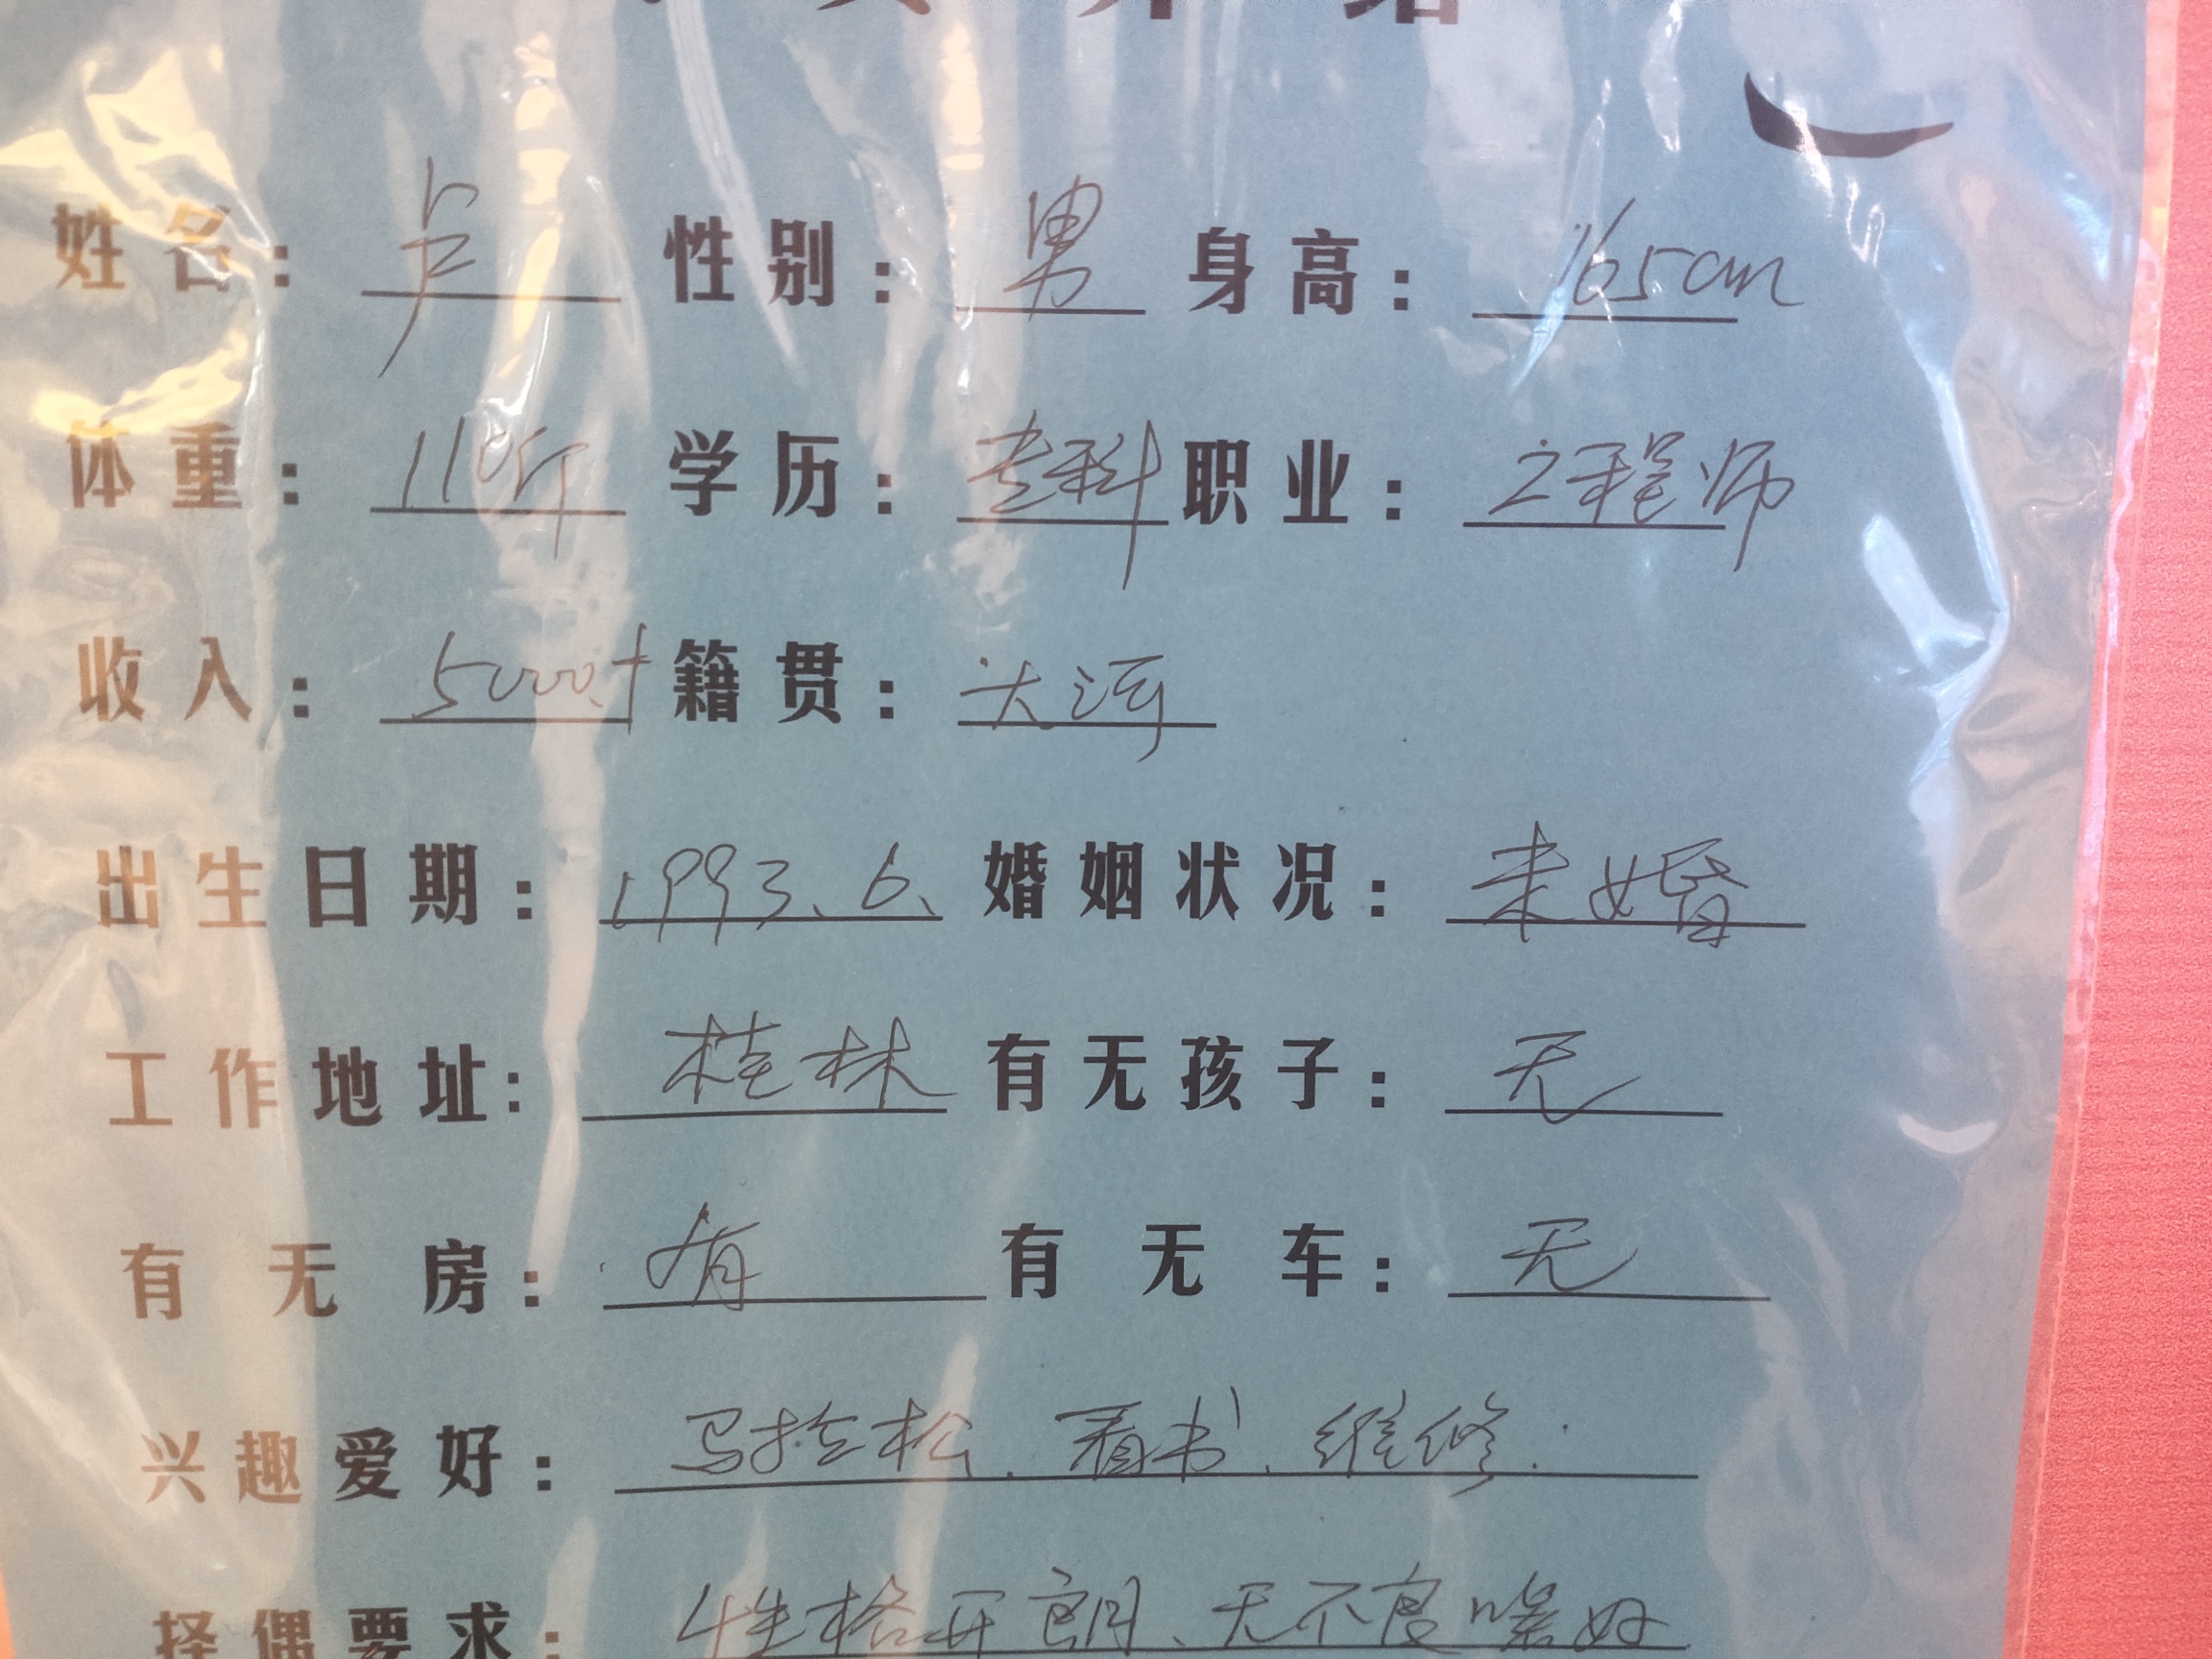 介绍
姓名：卢 性别：男 身高：165cm
体重：110斤 学历：专科 职业：工程师
收入：5000+ 籍贯：大河
出生日期：1993.6. 婚姻状况：未婚
工作地址：桂林 有无孩子：无
有无房：有 有无车：无
兴趣爱好：马拉松、看书、维修.
择偶要求：性格开朗、无不良嗜好